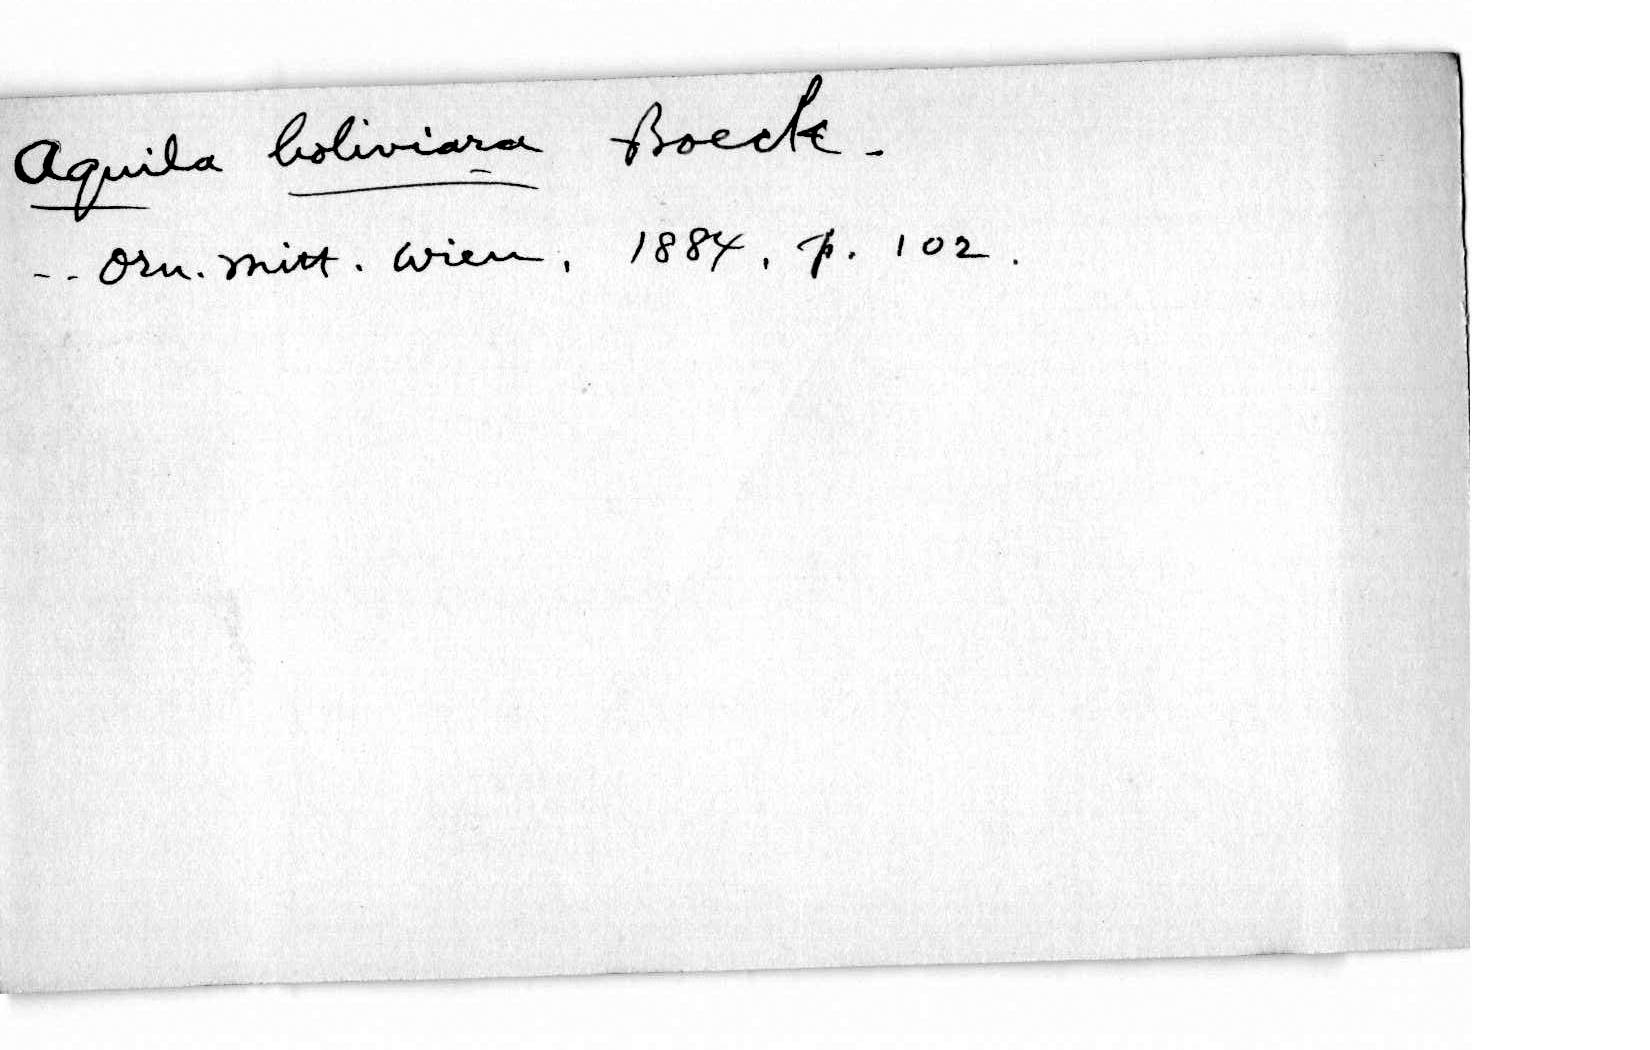 Aquila boliviara Boeck.
-- Orn. Mitt. Wien, 1884, p. 102.